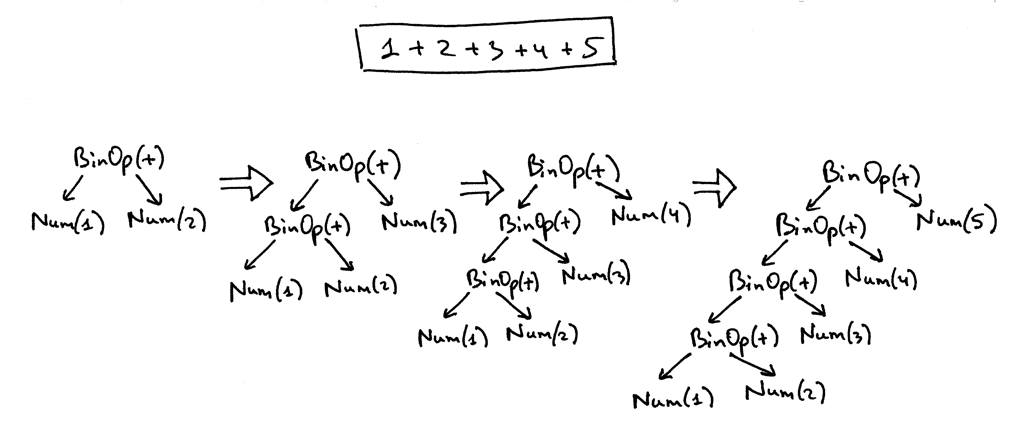 1 + 2 + 3 + 4 + 5
BinOp(+)
Num(1) Num(2)
BinOp(+)
BinOp(+) Num(3)
Num(1) Num(2)
BinOp(+)
BinOp(+) Num(4)
BinOp(+) Num(3)
Num(1) Num(2)
BinOp(+)
BinOp(+) Num(5)
BinOp(+) Num(4)
BinOp(+) Num(3)
Num(1) Num(2)